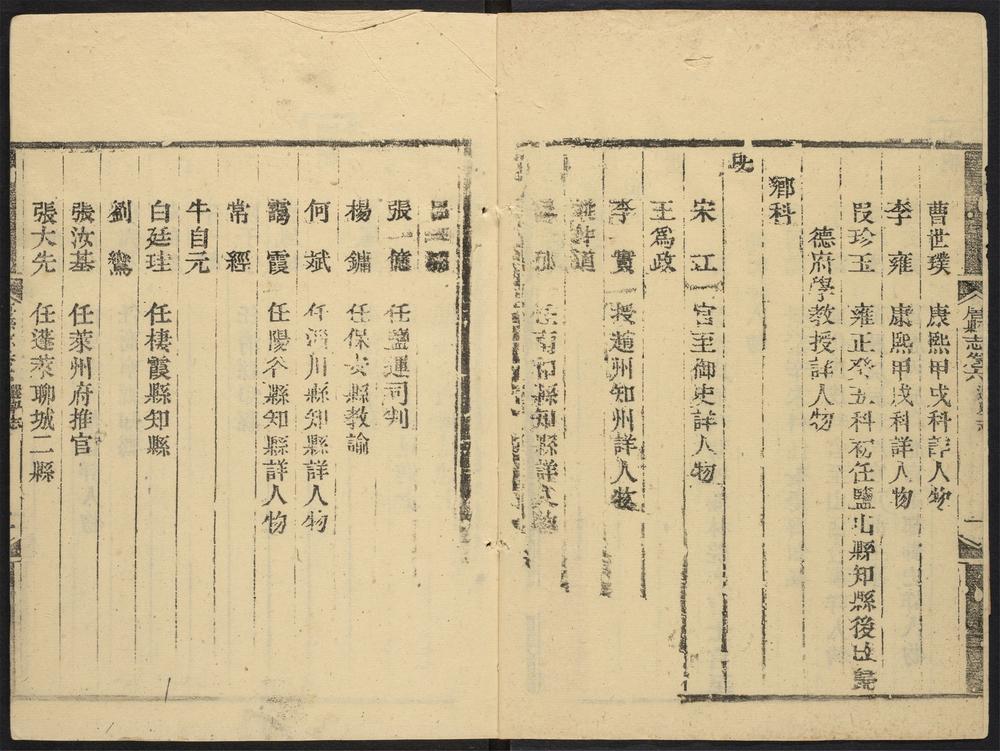 曹世璞　康熙甲戌科詳人物
李　雍　康熙甲戌科詳人物
段珍玉　雍正癸丑科初任鹽山縣知縣後改歸
德府學教授詳人物
鄉科
宋　江　官至御史詳人物
王為政
李　實　授趙州知州詳人物
任南和縣知縣詳人物
張一億　任鹽運司判
楊　鏞　任保安縣教諭
何　斌　任淄川縣知縣詳人物
靄　霞　任陽谷縣知縣詳人物
常　經
牛自元
白廷珪　任棲霞縣知縣
劉　鸞
張汝基　任萊州府推官
張大先　任蓬萊聊城二縣